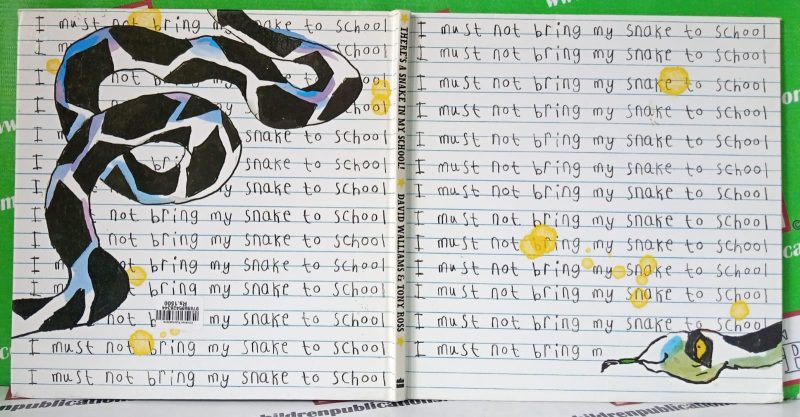 I must not bring my snake to school
I must
I not school
I
I snake to school
I bring snake to school
I snake to school
I not bring my snake to school
I not bring my snake to school
I not bring my snake to school
I bring my snake to school
I not bring my snake to school
I must not bring my snake to school
I must not bring my snake to school
Rs.1500
THERE'S A SNAKE IN MY SCHOOL! DAVID WALLIAMS & TONY ROSS
I must not bring my snake to school
I must not bring my snake to school
I must not bring my snake to school
I must not bring my snake to school
I must not bring my snake to school
I must not bring my snake to school
I must not bring my snake to school
I must not bring my snake to school
I must not bring my snake to school
I must not bring my snake to school
I must not bring my snake to school
I must not bring my snake to school
I must not bring m